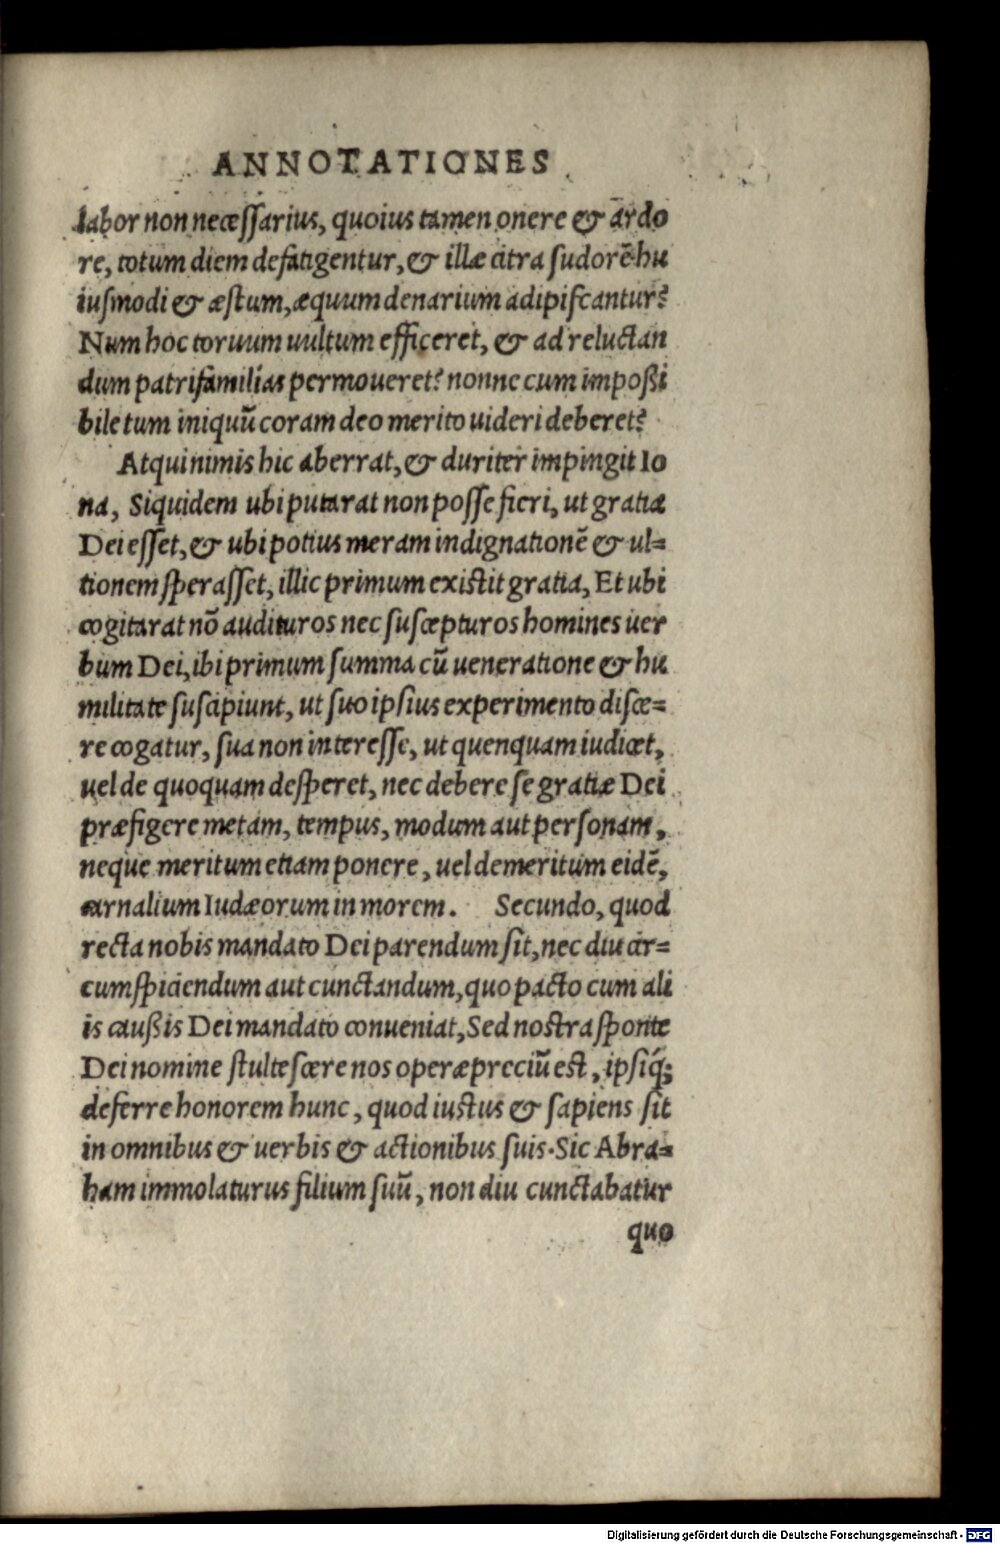 ANNOTATIONES
labor non necessarius, quoius tamen onere & ardo
re, totum diem defatigentur, & illæ citra sudorē hu
iusmodi & æstum, æquum denarium adipiscantur?
Num hoc toruum uultum efficeret, & ad reluctan
dum patrifamilias permoueret? nonne cum impoßi
bile tum iniquū coram deo merito uideri deberet?
Atqui nimis hic aberrat, & duriter impingit Io
na, Siquidem ubi putarat non posse fieri, ut gratia
Dei esset, & ubi potius meram indignationē & ul=
tionem sperasset, illic primum existit gratia, Et ubi
cogitarat nō audituros nec suscepturos homines uer
bum Dei, ibi primum summa cū ueneratione & hu
militate suscipiunt, ut suo ipsius experimento disce=
re cogatur, sua non interesse, ut quenquam iudicet,
uel de quoquam desperet, nec debere se gratiæ Dei
præfigere metam, tempus, modum aut personam,
neque meritum etiam ponere, uel demeritum eidē,
carnalium Iudæorum in morem. Secundo, quod
recta nobis mandato Dei parendum sit, nec diu cir=
cumspiciendum aut cunctandum, quo pacto cum ali
is caußis Dei mandato conueniat, Sed nostra sponte
Dei nomine stultescere nos operæpreciū est, ipsiq́;
deferre honorem hunc, quod iustus & sapiens sit
in omnibus & uerbis & actionibus suis. Sic Abra=
ham immolaturus filium suū, non diu cunctabatur
quo
Digitalisierung gefördert durch die Deutsche Forschungsgemeinschaft - DFG